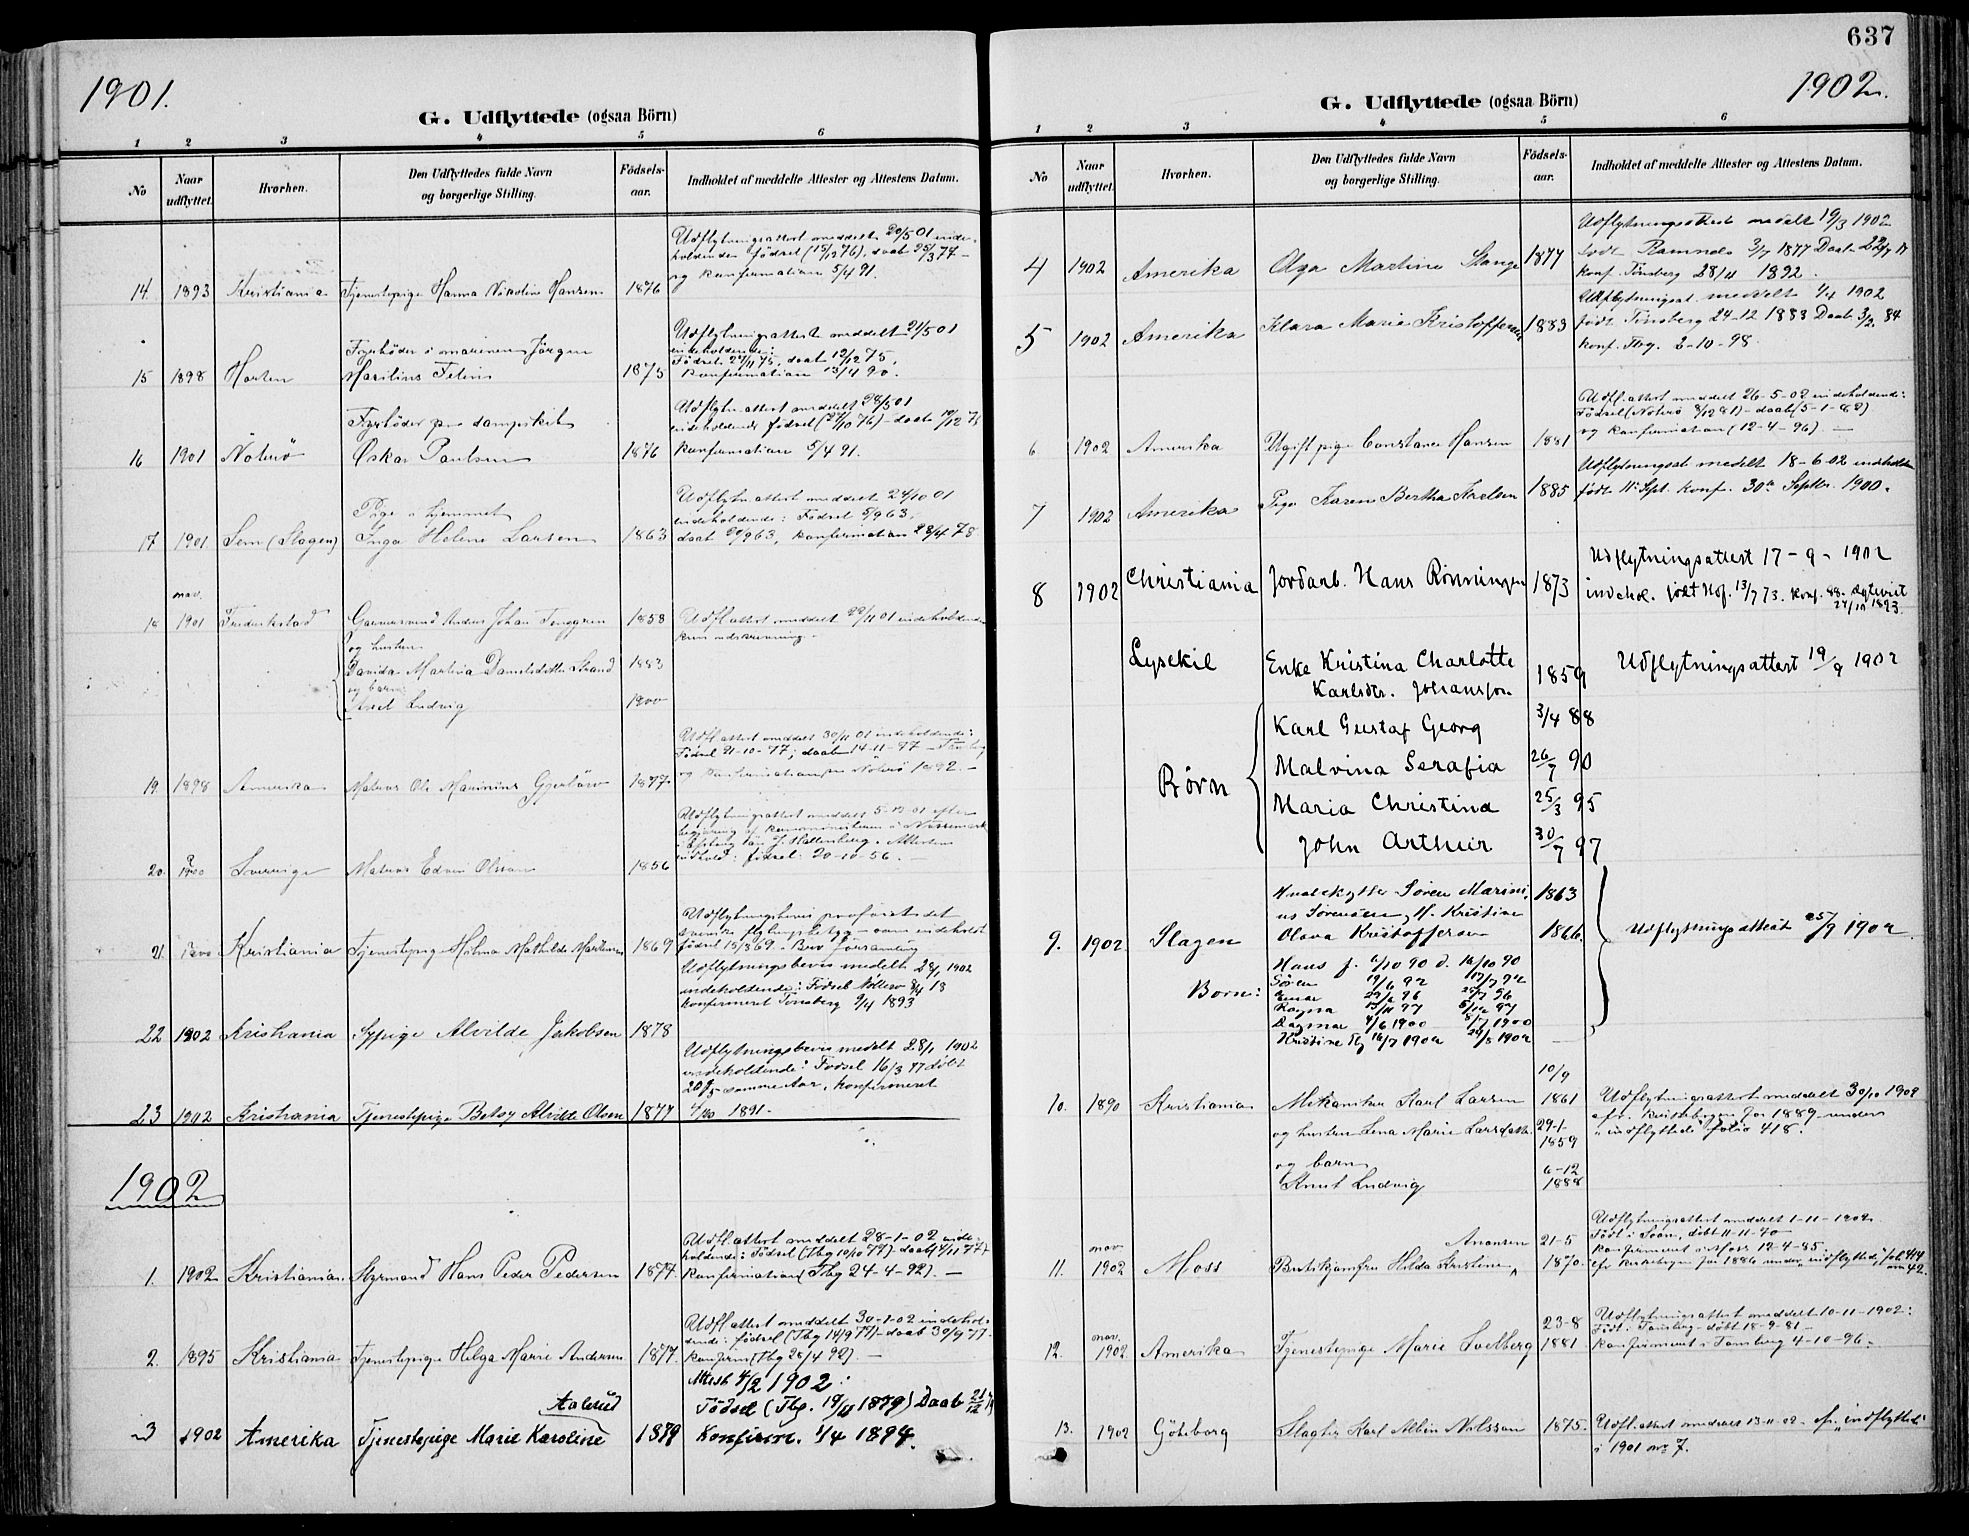 1901.
G. Udflyttede (ogsaa Börn)
1 2 3 4 5 6
No
Naar udflyttet.
Hvorhen.
Den Udflyttedes fulde Navn
og borgerlige Stilling.
Födsels-
aar.
Indholdet af meddelte Attester og Attestens Datum.
Udflytningsattest meddelt 20/5 01 inde-
holdende fødsel (15/12 76), daab 25/3 77 –
og konfirmation 5/4 91.
14. 1893 Kristiania Tjenestepige Hanna Nikoline Hansen 1876
Udflytningsattest meddelt 21/5 01
indeholdende:
Fyrbøder i marinen Jörgen
Fødsel 27/11 75, daab 19/12 75,
15 1898 Horten Marilius Felius 1875 Konfirmation 13/4 90.
Udflytn. attest meddelt 28/5 01
Fyrbøder p dampskib
indeholdende fødsel (27/10 76) – daab 19/12 76
16 1901 Nøterø Oskar Paulsen 1876 Konfirmation 5/4 91.
Udflytn. attest meddelt 24/10 01
Pige i hjemmet
indeholdende: Fødsel 5/9 63,
17 1901 Sem (Slagen) Inga Helene Larsen 1863 daab 9/63, Konfirmation 28/4 78
nov.
18 1901 Frederikstad Anders Johan Tenggren 1858 Udfl. attest meddelt 22/11 01 indeholdende
og hustru
Davida Martina Danielsdatter Strand 1883
og barn:
Axel Ludvig 1900
Udfl. attest meddelt 30/11 01 indeholdende:
Fødsel 21-10-77, daab 14-11-77 – Tønsberg
19 1898 Amerika Matros Ole Marinius 1877 og konfirmation Nøterø 1892. –
Udflytningsattest meddelt 5-12-01 efter
begjæring af
J. Hallenberg. Attesten
20. 1900 Sverige Matros Edvin Olsson 1856 indhold: fødsel: 20-10-56. –
Udflytningsbevis
svenske
21. 1900 Kristiania Tjenestepige Hilma Mathilde 1869 fødsel 15/3 69.
Udflytningsbevis medelt 28/1 1902
indeholdende: Födsel Nøtterø
konfirmeret Tønsberg 9/4 1893
22 1902 Kristiania Sypige Alvilde Jakobsen 1878
Udflytningsbevis medelt 28/1 1902
indeholdende: Fødsel 16/3 77 døbt
20/5 samme Aar, konfirmeret
23 1902 Kristiania Tjenestepige Betsy Alvilde Olsen 1877 4/10 1891.
1902
Udfl. attest meddelt 28-1-02 inde-
holdende: Fødsel (Tbg 10/10 77) daab (4/11 77)
1. 1902 Kristiania. Styrmand Hans Peder Pedersen 1877 Konfirmation (Tbg 24-4-92). –
Udfl. attest meddelt 30-1-02 indehol-
dende: fødsel (Tbg 14/9 77) – daab 30/9 77 –
2. 1895 Kristiania Tjenestepige Helga Marie Andersen 1877. konfirm (Tbg 28/4 92). –
Attest 4/2 1902:
Aalerud
Födsel (Tbg. 19/11 1879) Daab 21/12 79
3 1902 Amerika Tjenestepige Marie Karoline 1879 Konfirm. 1/4 1894.
637
1902.
G. Udflyttede (ogsaa Börn)
1 2 3 4 5 6
No
Naar
udflyttet.
Hvorhen.
Den Udflyttedes fulde Navn
og borgerlige Stilling.
Födsels-
aar.
Indholdet af meddelte Attester og Attestens Datum.
Udflytningsattest medelt 19/3 1902
4 1902 Amerika Olga Martine Stange 1877 født Ramnes 3/7 1877 Daab 22/7 77
konf. Tönsberg 28/4 1892.
Udflytningsat. meddelt 1/4 1902
5 1902 Amerika Klara Marie Kristoffersen 1883 født Tönsberg 24-12 1883 Daab 3/2 84
konf. Tbg. 2-10-98.
Udfl. attest meddelt 26-5-02 indeholdende:
Fødsel (Nøterø 8/12 81) – daab (5-1-82)
6 1902 Amerika Ugift pige Constance Hansen 1881 og konfirmation (12-4-96). –
Udflytningsat. medelt 18-6-02 indehold
7 1902 Amerika Pige Karen Bertha Karlsen 1885 født 11 Sept. konf. 30te Septbr. 1900.
Udflytningsattest 17-9-1902
8 1902 Christiania Jordarb. Hans Rønningen 1873 indehol. født Hof. 13/7 73. konf. 88. ægteviet
24/10 1893
Lysekil Enke Kristina Charlotte
Karlsdtr. Johansson. 1859 Udflytningsattest 19/9 1902
Børn
Karl Gustaf Georg 3/4 88
Malvina Serafia 26/7 90
Maria Christina 25/3 95
John Arthur 30/7 97
Søren Marini- 1863
us Sørensen, H. Kristine
9. 1902 Slagen Olava Kristoffersen 1866. Udflytningsattest 25/9 1902.
Børn:
Hans f. 6/10 90 d. 16/10 90
Søren 19/6 92 17/7 92
Einar 29/6 96 26/7 96
Ragna 13/11 97 5/12 97
Dagmar 4/6 1900 8/7 1900
Kristine Tbg 16/7 1902 24/8 1902
10/9
10. 1890 Kristiania Mekaniker Karl Larsen 1861 Udflytningsattest meddelt 30/10 1902
og hustru Lena Marie Larsdatter 29-1- 1859 cfr. kirkebogen for 1889 under
"indflyttede" folio 418.
og barn
Knut Ludvig 6-12 1888
Udflytningsattest meddelt 1-11-1902.
Anonsen 21-5 Født i Soon, døbt 11-11-70 –
nov. konfirmeret i Moss 12-4-85.
11. 1902 Moss Butikjomfru Hilda Kristine 1870. cfr. kirkebogen for 1886 under "indflyttede", fol. 414
no 42.
23-8 Udflytningsattest meddelt 10-11-1902:
nov. Født i Tønsberg – døbt 18-9-81 –
12. 1902 Amerika Tjenestepige Marie Solberg 1881 konfirmeret i Tønsberg 4-10-96. –
13. 1902 Göteborg Slagter Karl Albin Nilsson 1875. Udfl. attest meddelt 13-11-02. cfr. "indflyttede"
i 1901 no 7.